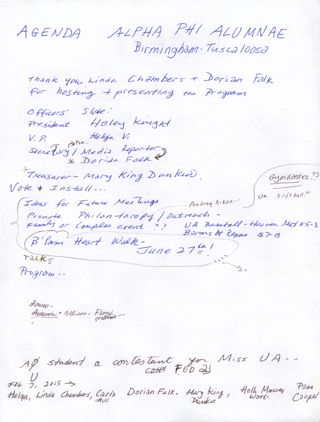 AGENDA ALPHA PHI ALUMNAE
Birmingham-Tuscaloosa
Thank you Linda Chambers + Dorian Falk
for hosting + presenting the Program
Officers' Slate:
President Haley Knight
V.P. Helga V.
Secretary / Media Reporter
Dorian Falk
Treasurer - Mary King Dunkin.
Vote + Install...
Gymnastics??
UA Softball?
Ideas for Future Meetings
Audrey
Promote Philanthropy / Outreach -
Family or Couples event ??
UA Baseball - Hoover Met
Barons At Region
B'ham Heart Walk -
June 27th!
Talk:
Program..
AΦ student a contestant for Miss UA..
Feb 21
Feb 7, 2015 →
Helga, Linda Chambers, Carla Hill Dorian Falk, Mary King Dunkin Holli Watts Pam Cooper